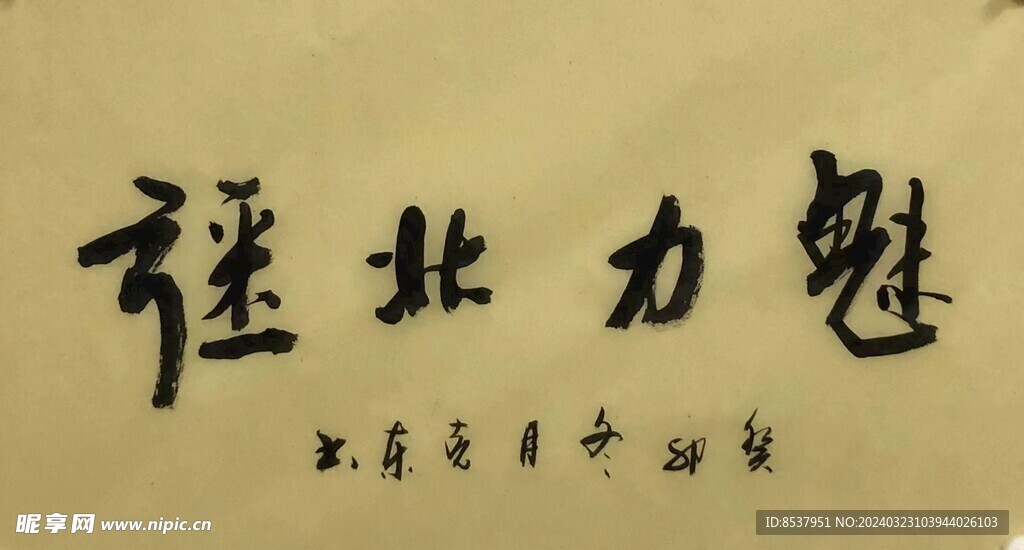 魅力北疆
癸卯冬月克东书
昵享网 www.nipic.cn
ID:8537951 NO:20240323103944026103